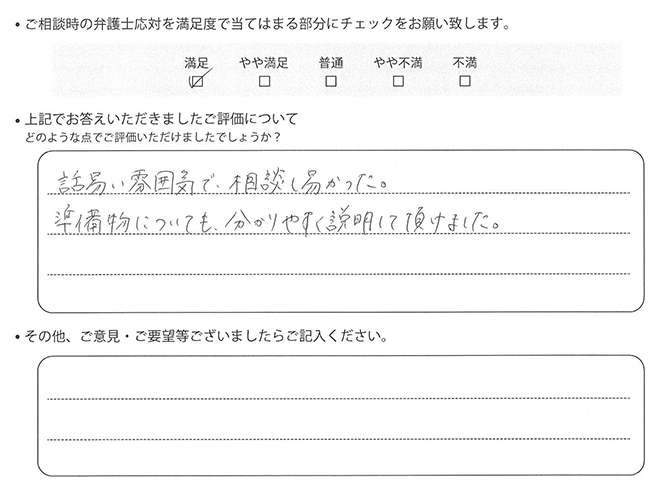 • ご相談時の弁護士応対を満足度で当てはまる部分にチェックをお願い致します。
満足 やや満足 普通 やや不満 不満
• 上記でお答えいただきましたご評価について
どのような点でご評価いただけましたでしょうか？
話易い雰囲気で、相談し易かった。
準備物についても、分かりやすく説明して頂けました。
• その他、ご意見・ご要望等ございましたらご記入ください。